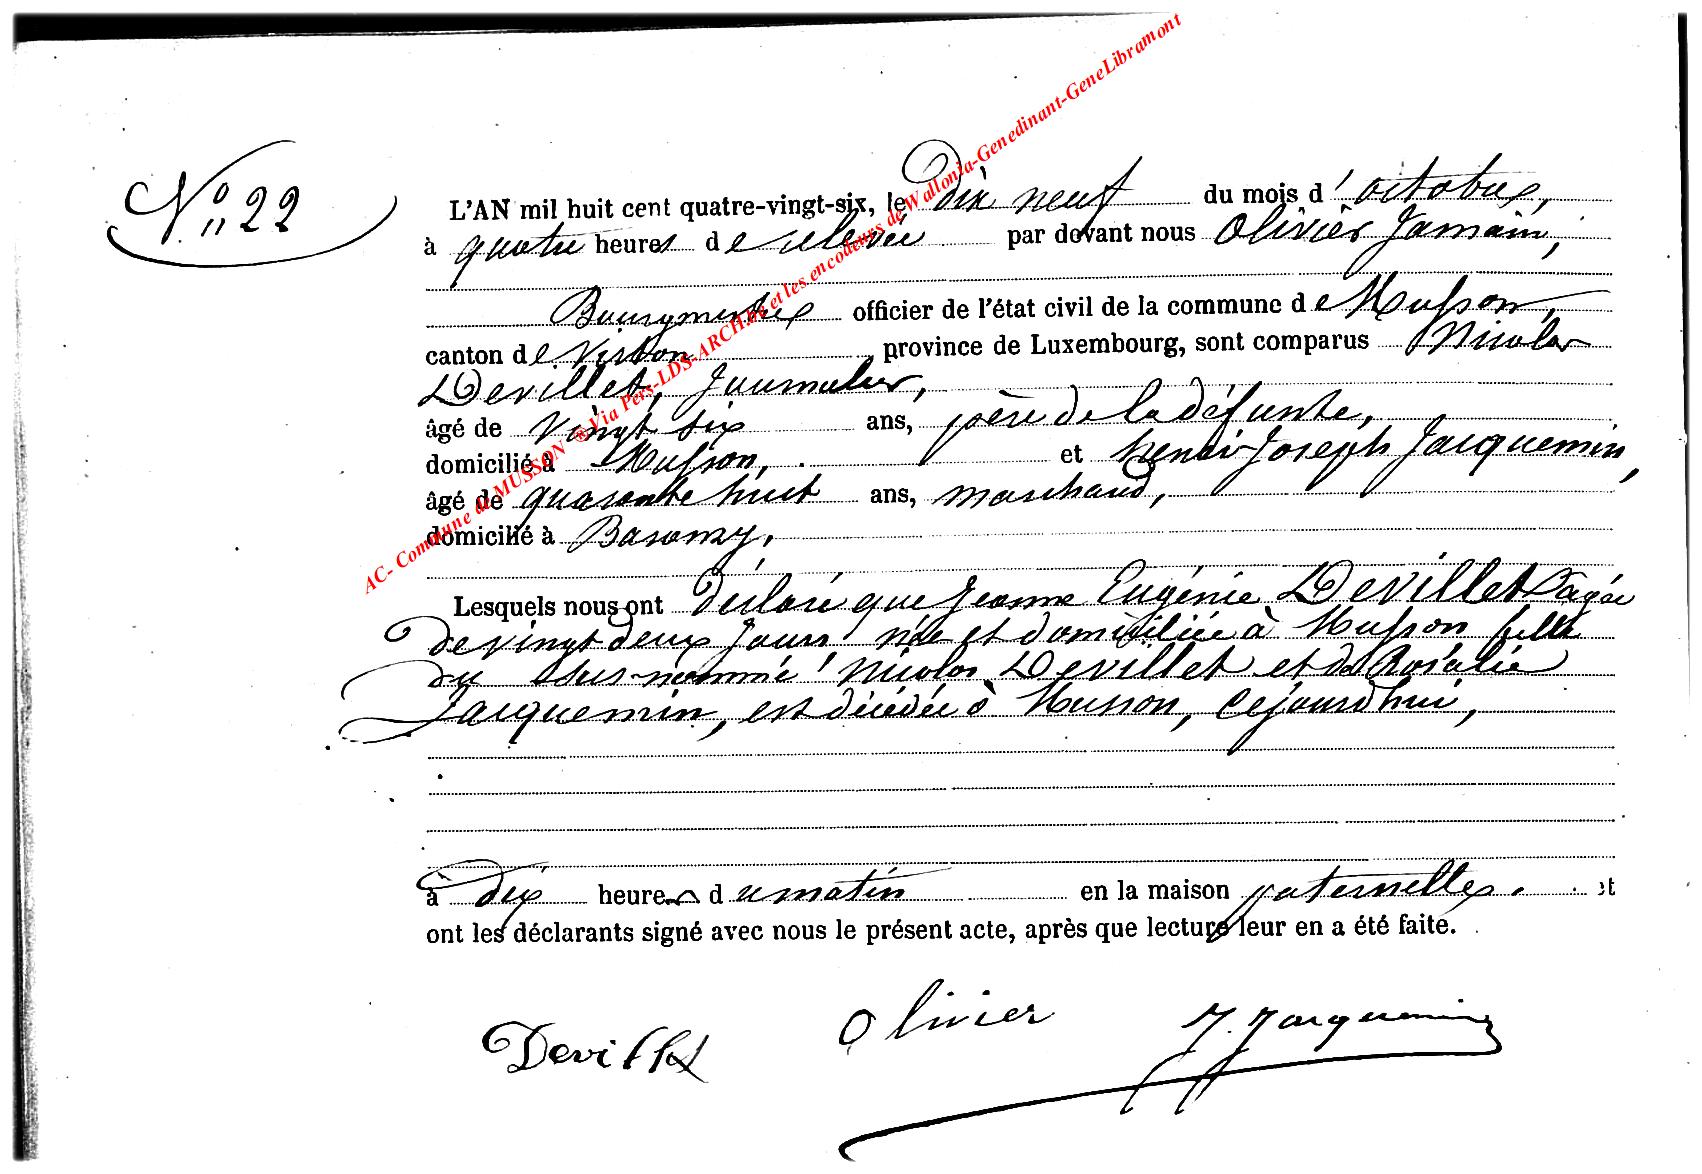 N° 22
L'AN mil huit cent quatre-vingt-six, le dix neuf du mois d'octobre,
à quatre heures de relevée par devant nous Olivier Jamain,
Bourgmestre officier de l'état civil de la commune de Musson,
canton de Virton, province de Luxembourg, sont comparus Nicolas
Devillet, Journalier,
âgé de vingt six ans, père de la défunte,
domicilié à Musson, et Henri Joseph Jacquemin,
âgé de quarante huit ans, marchand,
domicilié à Baranzy.
Lesquels nous ont déclaré que Jeanne Eugénie Devillet âgée
de vingt deux jours, née et domiciliée à Musson fille
du susnommé Nicolas Devillet et de Rosalie
Jacquemin, est décédée à Musson, cejourdhui,
à dix heures du matin en la maison paternelle. et
ont les déclarants signé avec nous le présent acte, après que lecture leur en a été faite.
Devillet Olivier J. Jacquemin
AC- Commune de MUSSON ®Via Pers-LDS-ARCH.be et les encodeurs de Wallonia-Genedinant-GeneLibramont